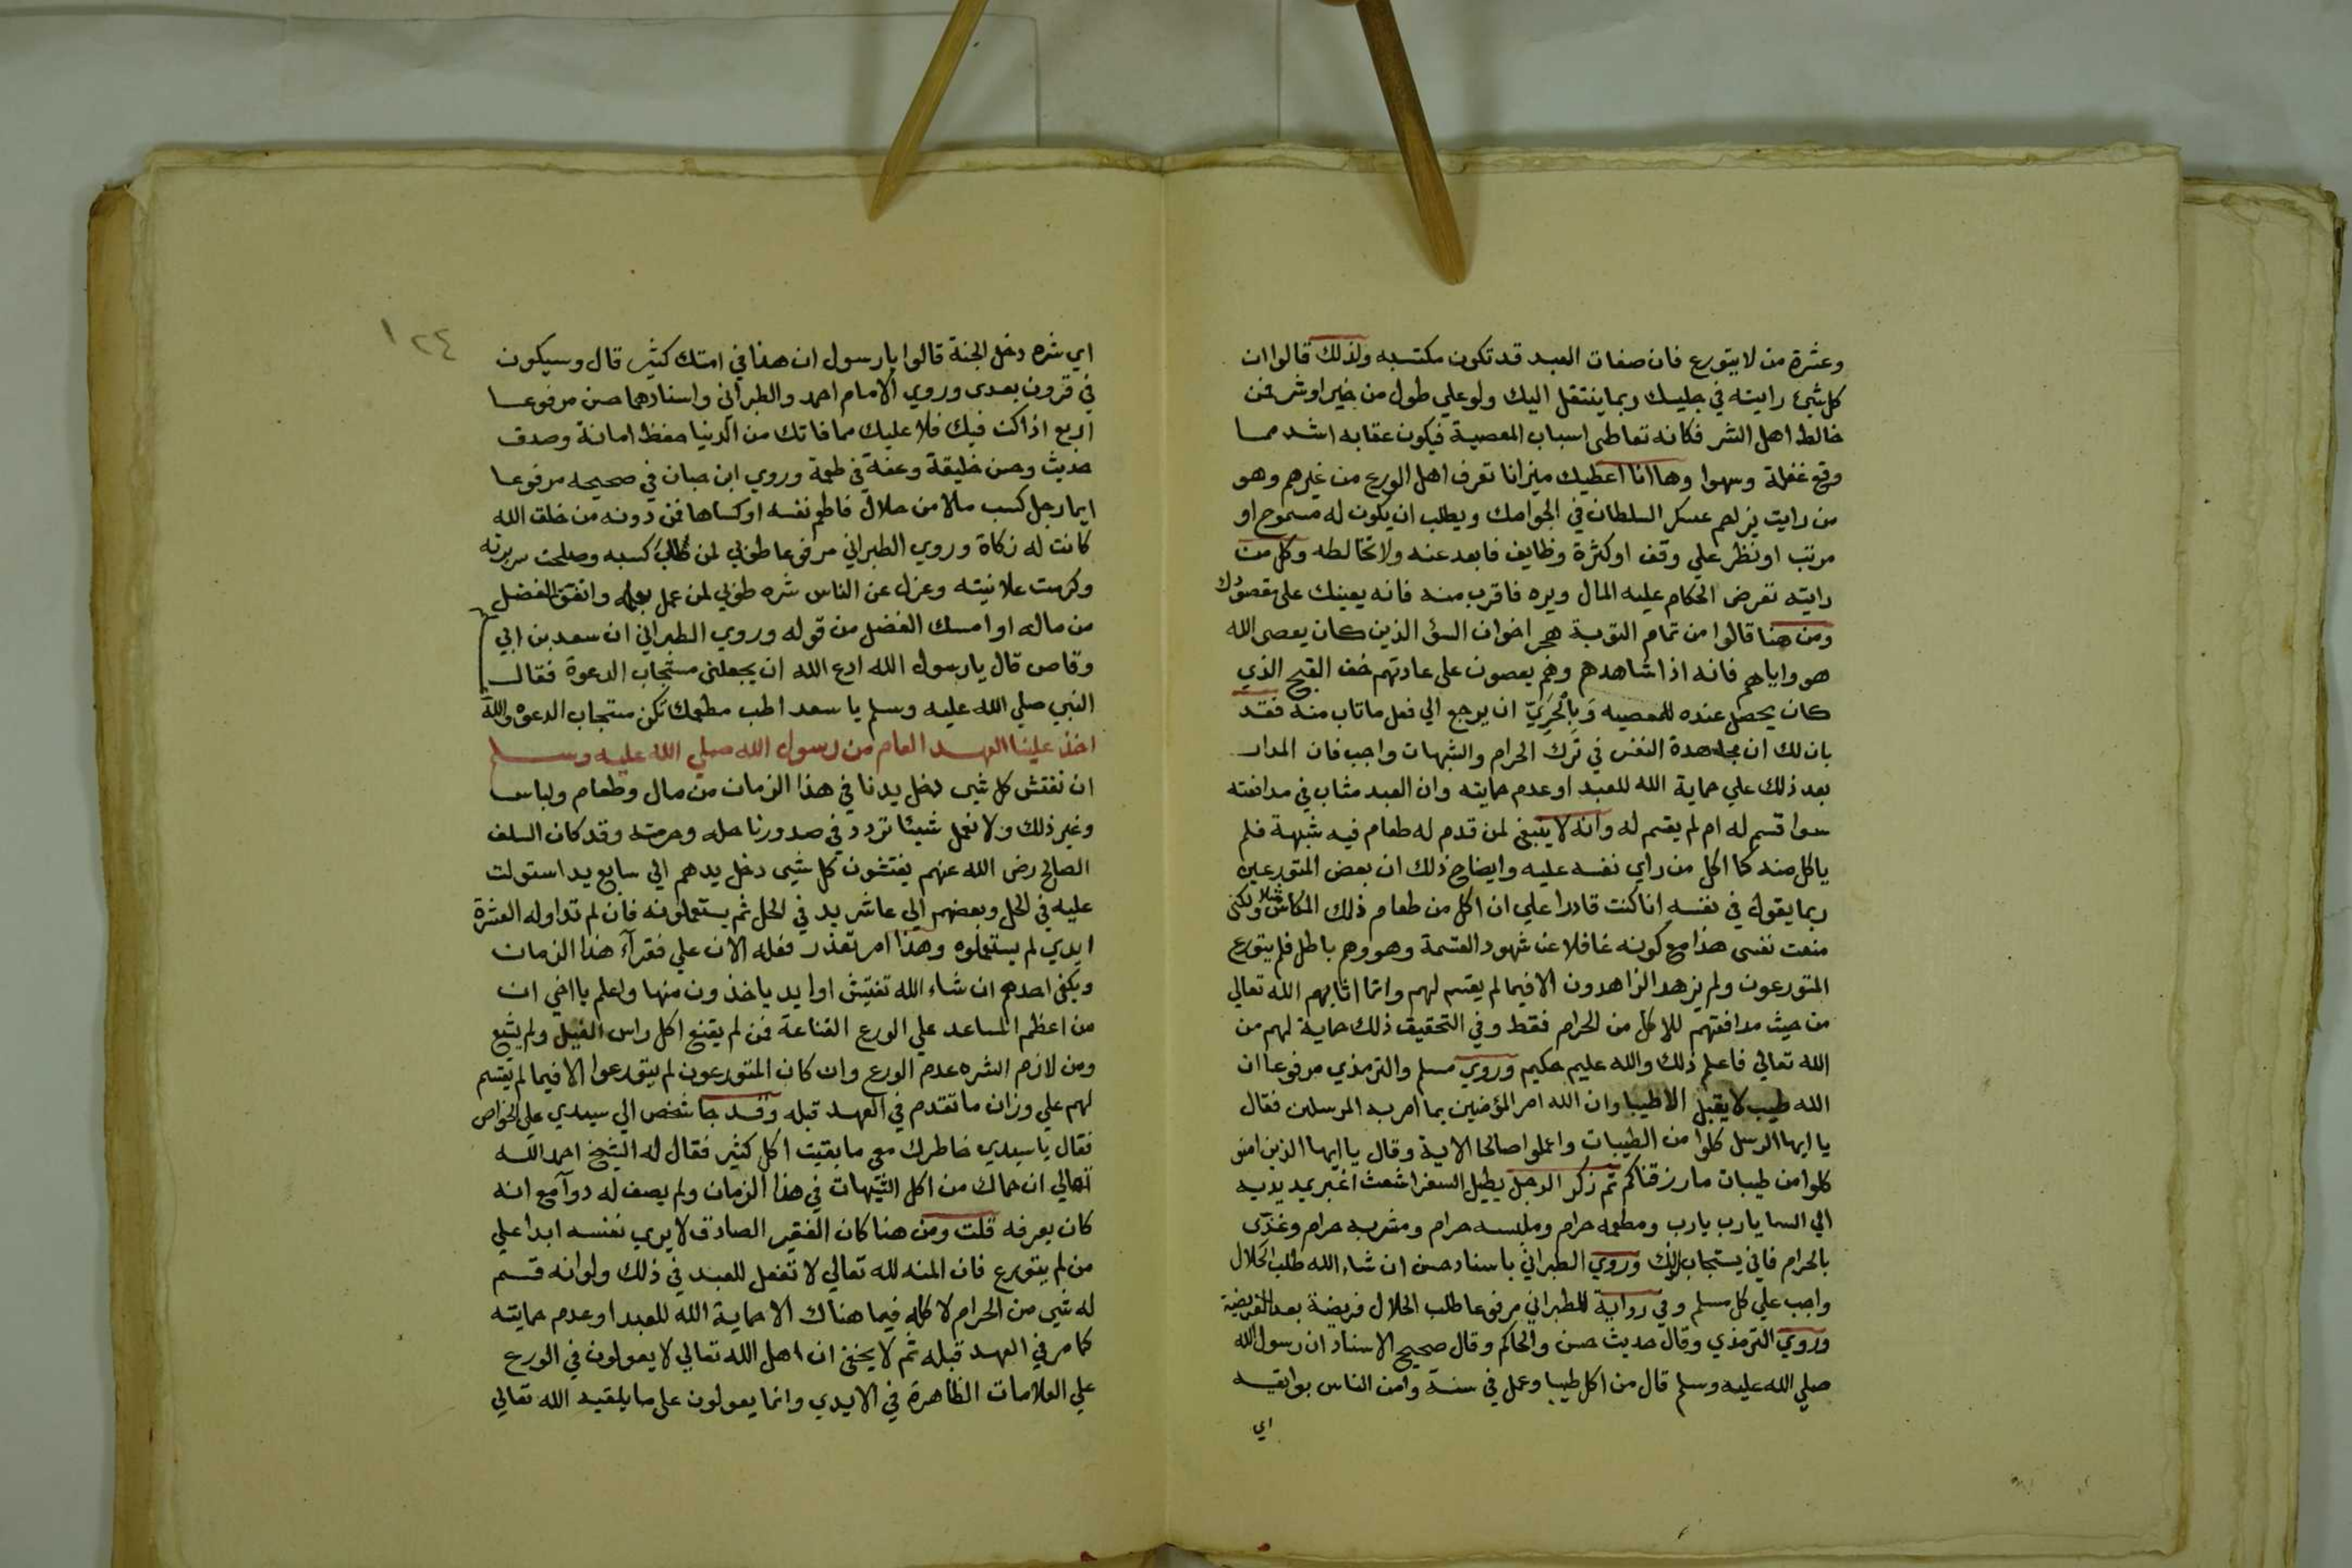 وعشرة من لا يتورع فان صفات العبد قد تكون مكتسبه ولذلك قالوا ان
كل شيء رايته في جليسك ربما ينتقل اليك ولو علي طول من خير او شر فمن
خالط اهل الشر فكانه تعاطي اسباب المعصية فيكون عقابه اشد مما
وقع غفلة وسهوا وها انا اعطيك ميزانا تعرف اهل الورع من غيرهم وهو
من رايت يزاحم عسكر السلطان في الجوامك ويطلب ان يكون له مسموح او
مرتب او نظر علي وقف او كثرة وظايف فابعد عنه ولا تخالطه وكل من
رايته تعرض الحكام عليه المال ويرده فاقرب منه فانه يعينك على مقصودك
ومن هنا قالوا من تمام التوبة هجر اخوان السؤ الذين كان يعصى الله
هو واياهم فانه اذا شاهدهم وهم يعصون على عادتهم خف القبح الذي
كان يحصل عنده للمعصيه وَبِالْحَرِيّ ان يرجع الي فعل ما تاب منه فقد
بان لك ان مجاهدة النفس في ترك الحرام والشبهات واجب فان المدار
بعد ذلك علي حماية الله للعبد او عدم حمايته وان العبد مثاب في مدافعته
سوا قسم له ام لم يقسم له وانه لا ينبغي لمن قدم له طعام فيه شبهة فلم
ياكل منه كما اكل من راي نفسه عليه وايضاح ذلك ان بعض المتورعين
ربما يقول في نفسه انا كنت قادرا علي ان اكل من طعام ذلك المكاس مثلا ولكني
منعت نفسي هذا مع كونه غافلا عن شهود القسمة وهو وهم باطل فلم يتورع
المتورعون ولم يزهد الزاهدون الا فيما لم يقسم لهم وانما اثابهم الله تعالي
من حيث مدافعتهم للاكل من الحرام فقط وفي التحقيق ذلك حماية لهم من
الله تعالي فاعلم ذلك والله عليم حكيم وروي مسلم والترمذي مرفوعا ان
الله طيب لا يقبل الا طيبا وان الله امر المؤمنين بما امر به المرسلين فقال
يا ايها الرسل كلوا من الطيبات واعملوا صالحا الاية وقال يا ايها الذين امنو
كلوا من طيبات ما رزقناكم ثم ذكر الرجل يطيل السفر اشعث اغبر يمد يديه
الي السما يارب يارب ومطعمه حرام وملبسه حرام ومشربه حرام وغذّى
بالحرام فاني يستجاب لذلك وروي الطبراني باسناد حسن ان شاء الله طلب الحلال
واجب علي كل مسلم وفي رواية للطبراني مرفوعا طلب الحلال فريضة بعد الفريضة
وروي الترمذي وقال حديث حسن والحاكم وقال صحيح الاسناد ان رسول الله
صلي الله عليه وسلم قال من اكل طيبا وعمل في سنة وامن الناس بوايقه
اي
١٢٤
اي شره دخل الجنة قالوا يا رسول ان هذا في امتك كثير قال وسيكون
في قرون بعدي وروي الامام احمد والطبراني واسنادهما حسن مرفوعا
اربع اذا كن فيك فلا عليك مما فاتك من الدنيا حفظ امانة وصدق
حديث وحسن خليقة وعفة في طعمة وروي ابن حبان في صحيحه مرفوعا
ايما رجل كسب مالا من حلال فاطعم نفسه او كساها فمن دونه من خلق الله
كانت له زكاة وروي الطبراني مرفوعا طوبي لمن طاب كسبه وصلحت سريرته
وكرمت علانيته وعزل عن الناس شره طوبي لمن عمل بعلمه وانفق الفضل
من ماله او امسك الفضل من قوله وروي الطبراني ان سعد بن ابي
وقاص قال يا رسول الله ادع الله ان يجعلني مستجاب الدعوة فقال
النبي صلي الله عليه وسلم يا سعد اطب مطعمك تكن مستجاب الدعوه والله
اخذ علينا العهد العام من رسول الله صلي الله عليه وسلم
ان نفتش كل شي دخل يدنا في هذا الزمان من مال وطعام ولباس
وغير ذلك ولا نعمل شيئا تردد في صدورنا حله وحرمته وقد كان السلف
الصالح رضي الله عنهم يفتشون كل شي دخل يدهم الي سابع يد استولت
عليه في الحل وبعضهم الي عاشر يد في الحل ثم يستعملونه فان لم تداوله العشرة
ايدي لم يستعملوه وهذا امر تعذر فعله الان علي فقرآء هذا الزمان
ويكفي احدهم ان شاء الله تفتيش اول يد ياخذون منها واعلم يا اخي ان
من اعظم المساعد علي الورع القناعة فمن لم يقنع اكل راس الفيل ولم يشبع
ومن لازم الشره عدم الورع وان كان المتورعون لم يتورعوا الا فيما لم يقسم
لهم علي وزان ما تقدم في العهد قبله وقد جا شخص الي سيدي علي الخواص
فقال يا سيدي خاطرك معي ما بقيت اكل كثير فقال له الشيخ احمد الله
تعالي ان حماك من اكل الشبهات في هذا الزمان ولم يصف له دوآ مع انه
كان يعرفه قلت ومن هنا كان الفقير الصادق لا يري نفسه ابدا علي
من لم يتورع فان المنه لله تعالي لا تفعل للعبد في ذلك ولو انه قسم
له شي من الحرام لاكله فيما هناك الا حماية الله للعبد او عدم حمايته
كما مر في العهد قبله ثم لا يخفي ان اهل الله تعالي لا يعولون في الورع
علي العلامات الظاهرة في الايدي وانما يعولون على ما يلقيه الله تعالي